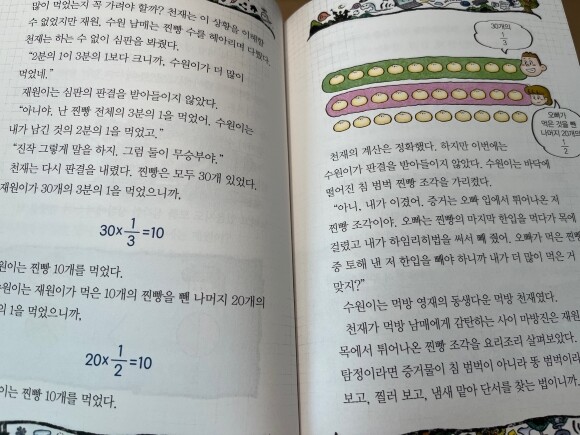 많이 먹었는지 꼭 가려야 할까? 천재는 이 상황을 이해할
수 없었지만 재원, 수원 남매는 찐빵 수를 헤아리며 다퉜다.
천재는 하는 수 없이 심판을 봐줬다.
“2분의 1이 3분의 1보다 크니까, 수원이가 더 많이
먹었네.”
재원이는 심판의 판결을 받아들이지 않았다.
“아니야. 난 찐빵 전체의 3분의 1을 먹었어. 수원이는
내가 남긴 것의 2분의 1을 먹었고.”
“진작 그렇게 말을 하지. 그럼 둘이 무승부야.”
천재는 다시 판결을 내렸다. 찐빵은 모두 30개 있었다.
재원이가 30개의 3분의 1을 먹었으니까,
30×1/3=10
원이는 찐빵 10개를 먹었다.
수원이는 재원이가 먹은 10개의 찐빵을 뺀 나머지 20개의
의 1을 먹었으니까,
20×1/2=10
이는 찐빵 10개를 먹었다.
30개의
1/3
오빠가
먹은 것을 뺀
나머지 20개의
1/2
천재의 계산은 정확했다. 하지만 이번에는
수원이가 판결을 받아들이지 않았다. 수원이는 바닥에
떨어진 침 범벅 찐빵 조각을 가리켰다.
“아니. 내가 이겼어. 증거는 오빠 입에서 튀어나온 저
찐빵 조각이야. 오빠는 찐빵의 마지막 한입을 먹다가 목에
걸렸고 내가 하임리히법을 써서 빼 줬어. 오빠가 먹은 찐빵
중 토해 낸 저 한입을 빼야 하니까 내가 더 많이 먹은 거
맞지?”
수원이는 먹방 영재의 동생다운 먹방 천재였다.
천재가 먹방 남매에게 감탄하는 사이 마방진은 재원
목에서 튀어나온 찐빵 조각을 요리조리 살펴보았다.
탐정이라면 증거물이 침 범벅이 아니라 똥 범벅이라
보고, 찔러 보고, 냄새 맡아 단서를 찾는 법이니까.